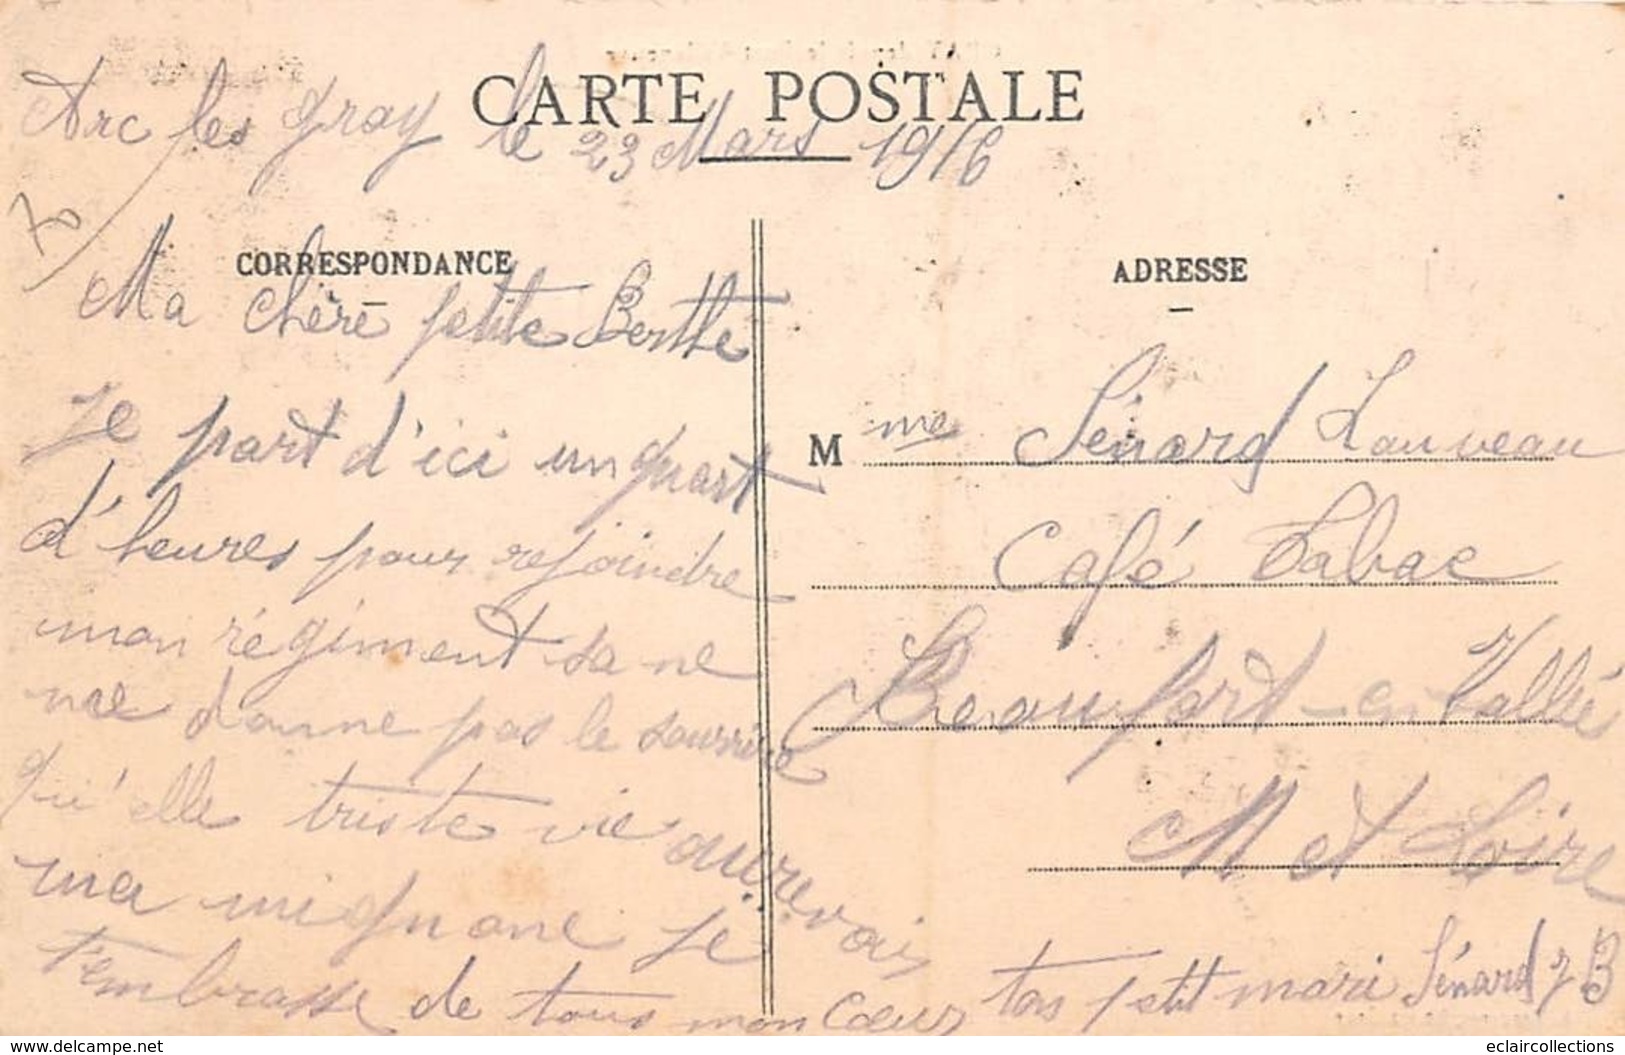 CARTE POSTALE
Arc les gray le 23 Mars 1916
CORRESPONDANCE
Ma chère petite Berthe
Je part d'ici un quart
d'heures pour rejoindre
mon régiment sa ne
me donne pas le sourrire
qu'elle triste vie aurevoir
ma mignone je
t'embrasse de tous mon cœur ton petit mari Sénard J B
ADRESSE
Mme Sénard Lauveau
Café Tabac
Beaufort-en Vallée
M et Loire
delcampe.net
eclaircollections